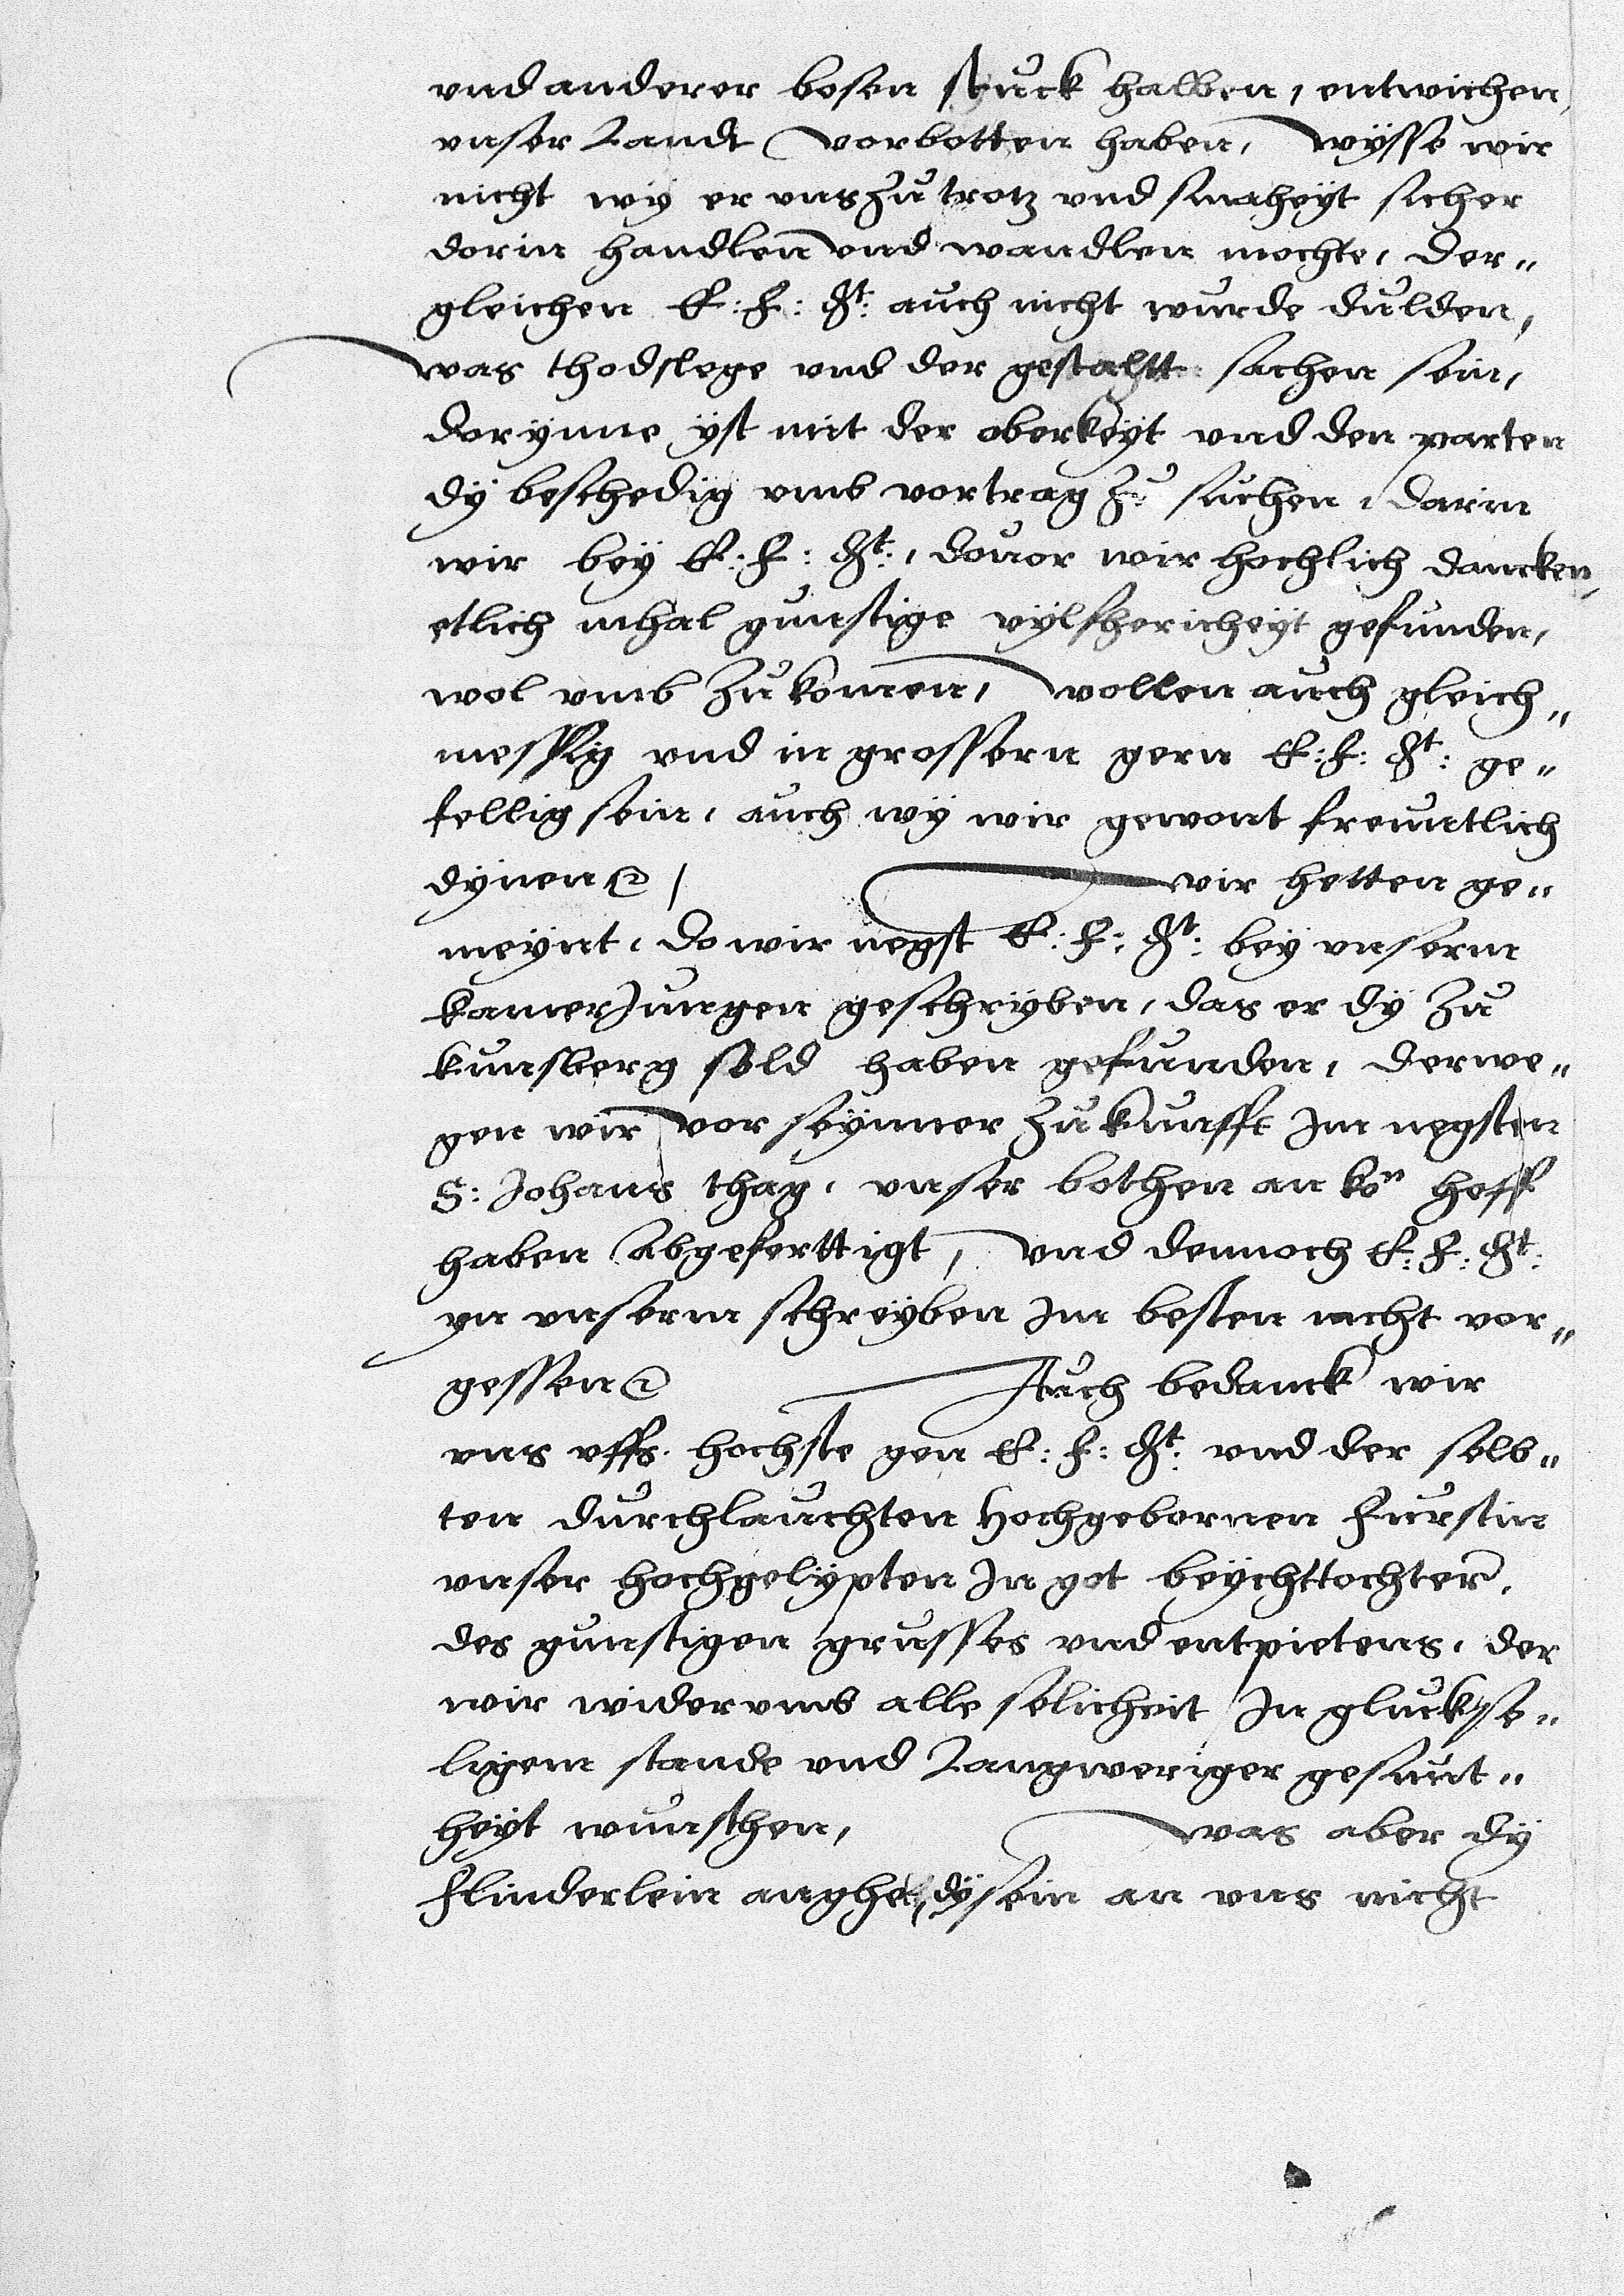 vnd anderer bosen stuck halben, entwichen,
vnser Landt vorbotten haben, wysse wir
nicht wÿ er vns zu trotz vnd smaheÿt sicher
dorin handlen vnd wandlen mochte, der„
gleichen E: F: Gt: auch nicht wurde dulden,
was thodslege vnd der gestaltt sachen sein,
dorynne ÿst mit der oberkeÿt vnd den parten
dÿ beschedig vmb vortrag zu suchen, darin
wir beÿ E: F: Gt:, douor wir hochlich dancken,
etlich mhal gunstige vÿlfhericheÿt gefunden,
wol vmb zukomen, wollen auch gleich„
messig vnd in grossern gern E: F: Gt: ge„
fellig sein, auch wÿ wir gewont freuntlich
dÿnen ꝛc / wir hetten ge„
meÿnt, do wir negst E: F: Gt: beÿ vnserm
kamerJungen geschrÿben, das er dÿ zu
kunsberg sold haben gefunden, derwe„
gen wir vor seÿnner zukunfft Im negsten
S: Johans thag, vnser bothen an kon hoff
haben abgeferttigt, vnd dennoch E: F: Gt:
yn vnserm schreÿben Im besten nicht vor„
gessen ꝛc Auch bedanck wir
vns vffs hochste gen E: F: Gt: vnd der selb„
ten durchlauchten Hochgebornen Furstin
vnser hochgelÿpten In got beÿchttochter,
des gunstigen grusses vnd entpietens, der
wir widerumb alle selicheit In gluckse„
ligem stande vnd Langweriger gesunt„
heÿt wunschen, was aber dÿ
Flinderlein anghet, dÿ sein an vns nicht